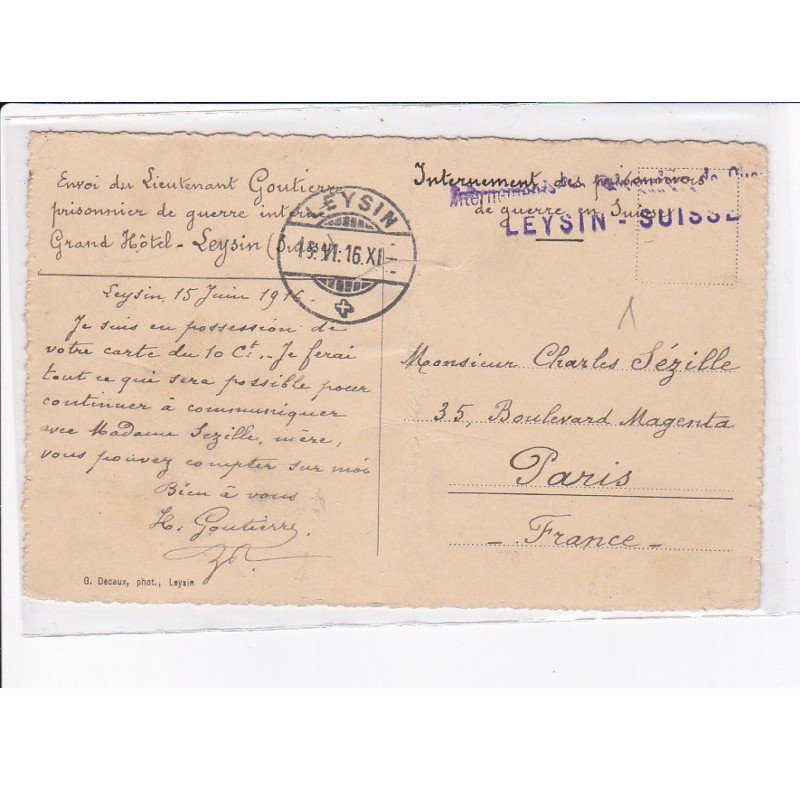 Envoi du Lieutenant Goutierre
prisonnier de guerre interné
Grand Hôtel - Leysin (Suisse)
Leysin, 15 Juin 1916.
Je suis en possession de
votre carte du 10 Ct. Je ferai
tout ce qui sera possible pour
continuer à communiquer
avec Madame Sézille, mère,
vous pouvez compter sur moi
Bien à vous
H. Goutierre.
G. Decaux, phot., Leysin
LEYSIN
15.VI.16.XI
Internement des prisonniers
de guerre en Suisse
Internement des prisonniers de Gue
LEYSIN - SUISSE
Monsieur Charles Sézille
35, Boulevard Magenta
Paris
- France -